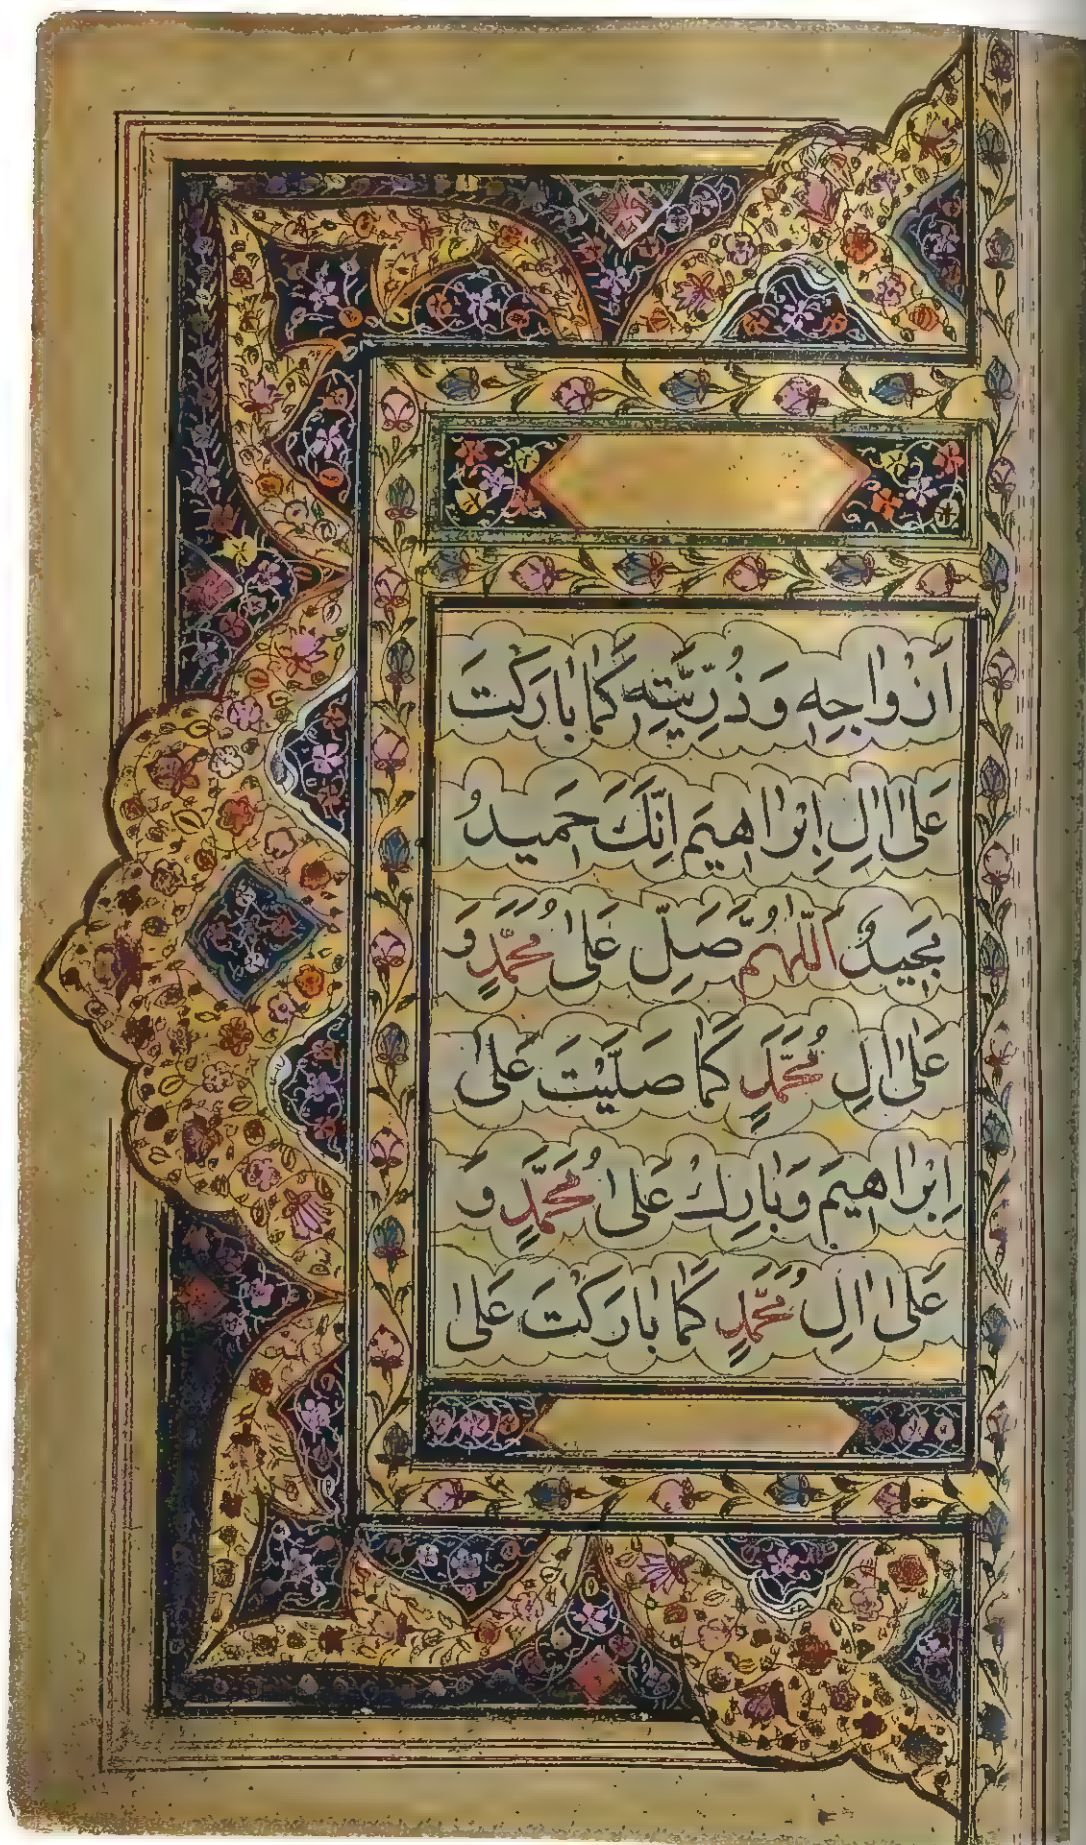 اَزْواجِهٖ وَذُرِّيَّتِهٖ كَمٰا بٰارَكْتَ
عَلىٰ اٰلِ اِبْرٰاهيٖمَ اِنَّكَ حَميٖدُ
مَجيٖدُ اَللّٰهُمَّ صَلِّ عَلىٰ مُحَمَّدٍ وَ
عَلىٰ اٰلِ مُحَمَّدٍ كَمٰا صَلَّيْتَ عَلىٰ
اِبْرٰاهيٖمَ وَبٰارِكْ عَلىٰ مُحَمَّدٍ وَ
عَلىٰ اٰلِ مُحَمَّدٍ كَمٰا بٰارَكْتَ عَلىٰ